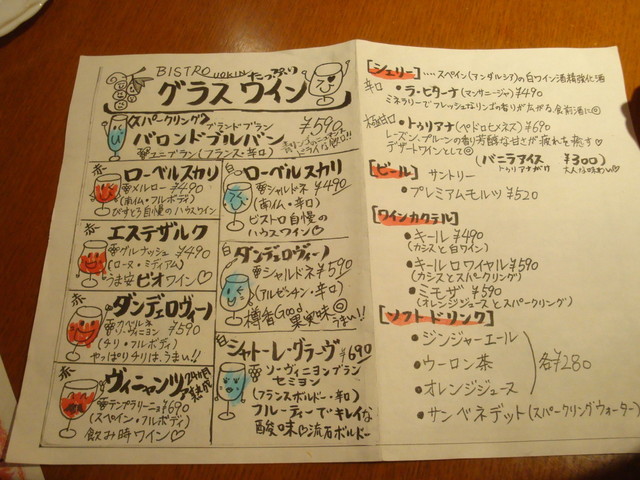 BISTRO UOKIN
たっぷり
グラスワイン
《スパークリング》
ブランドブラン
¥590
バロンドブルバン
ユニブラン(フランス・辛口)
赤
ローベルスカリ
メルロー ¥490
(南仏・フルボディ)
びすとろ自慢のハウスワイン
白
ローベルスカリ
シャルドネ ¥490
(南仏・辛口)
ビストロ自慢の
ハウスワイン♡
赤
エステザルク
グルナッシュ ¥490
(ローヌ・ミディアム)
うま安ビオワイン♡
白
ダンデェロヴィーノ
シャルドネ ¥590
(アルゼンチン・辛口)
樽香Good 果実味
うまい!!
赤
ダンデェロヴィーノ
カベルネ
ソーヴィニヨン ¥590
(チリ・フルボディ)
やっぱりチリは、うまい!!
白
シャトー・レ・グラーヴ ¥690
ソーヴィニヨンブラン
セミヨン
(フランスボルドー・辛口)
フルーティーでキレイな
酸味♡流石ボルドー
赤
ヴィニャンツァ
24カ月熟成
テンプラリーニョ ¥690
(スペイン・フルボディ)
飲み時ワイン♡
[シェリー]‥‥スペイン(アンダルシア)の白ワイン酒精強化酒
辛口
・ラ・ヒターナ(マンサニージャ)¥490
ミネラリーでフレッシュなリンゴの香りが広がる食前酒に◎
極甘口
・トゥリアナ(ペドロヒメネス)¥690
レーズン、プルーンの香り芳醇な甘さが疲れを癒す♡
デザートワインとして◎
(バニラアイス ¥300)
トゥリアナがけ 大人な味わい♡
[ビール] サントリー
・プレミアムモルツ ¥520
[ワインカクテル]
・キール ¥490
(カシスと白ワイン)
・キールロワイヤル ¥590
(カシスとスパークリング)
・ミモザ ¥590
(オレンジジュースとスパークリング)
[ソフトドリンク]
・ジンジャーエール
・ウーロン茶
各¥280
・オレンジジュース
・サンベネデット(スパークリングウォーター)